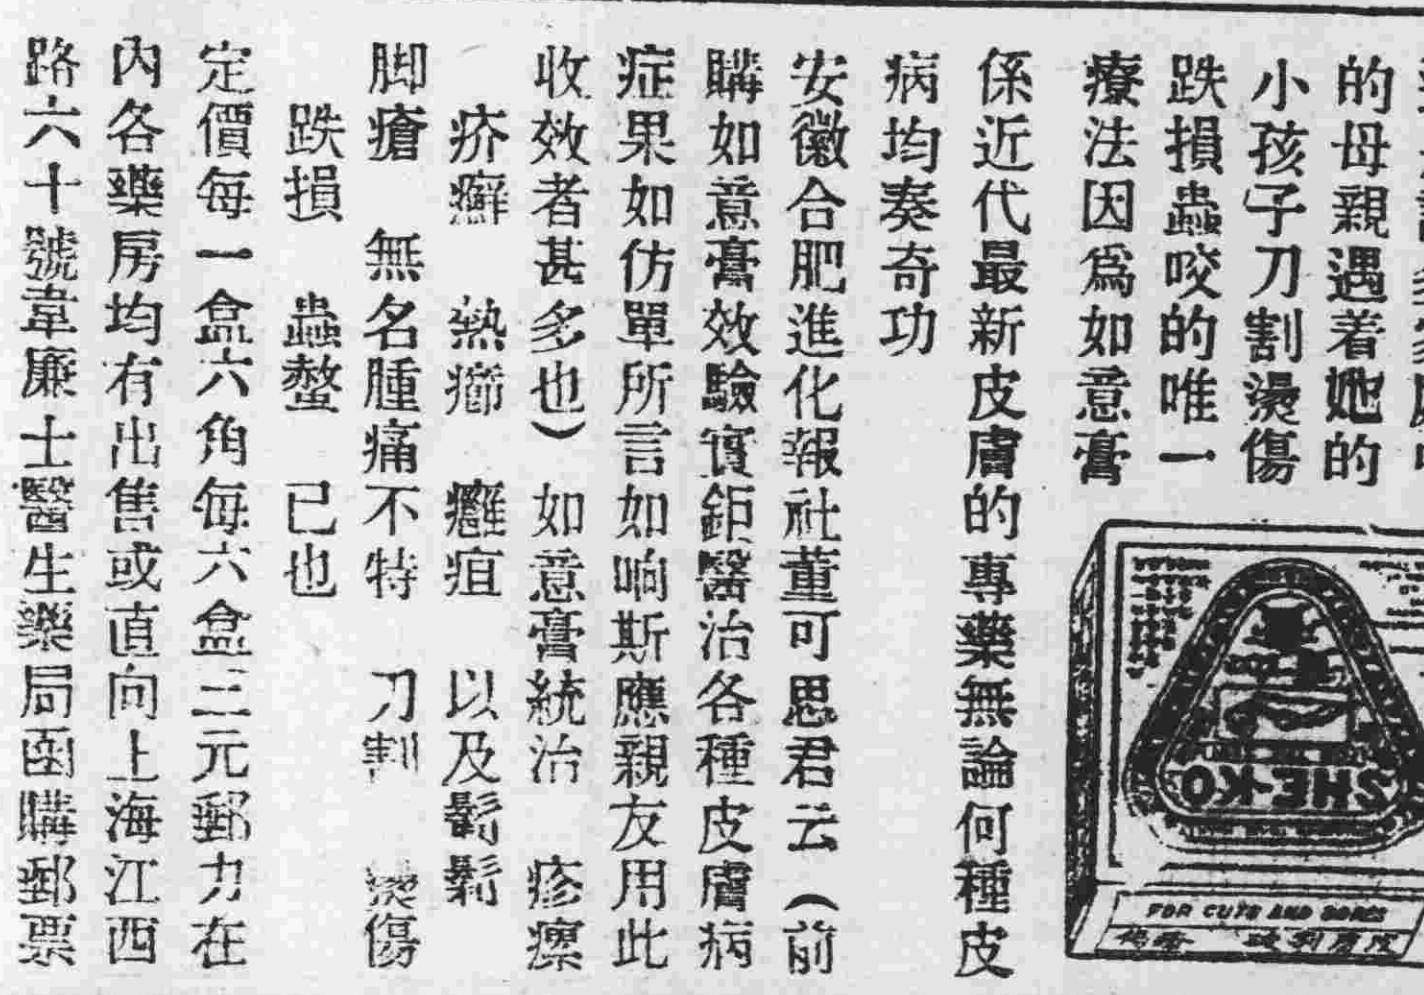 的母親遇着她的
小孩子刀割燙傷
跌損蟲咬的唯一
療法因爲如意膏
係近代最新皮膚的專藥無論何種皮
病均奏奇功
安徽合肥進化報社董可思君云（前
購如意膏效驗實鉅醫治各種皮膚病
症果如仿單所言如响斯應親友用此
收效者甚多也）如意膏統治 疹瘰
疥癬 熱癤 癰疽 以及鬎鬁
脚瘡 無名腫痛不特 刀割 燙傷
跌損 蟲螫 已也
定價每一盒六角每六盒三元郵力在
內各藥房均有出售或直向上海江西
路六十號韋廉士醫生藥局函購郵票
SHE-KO
FOR CUTS AND SORES